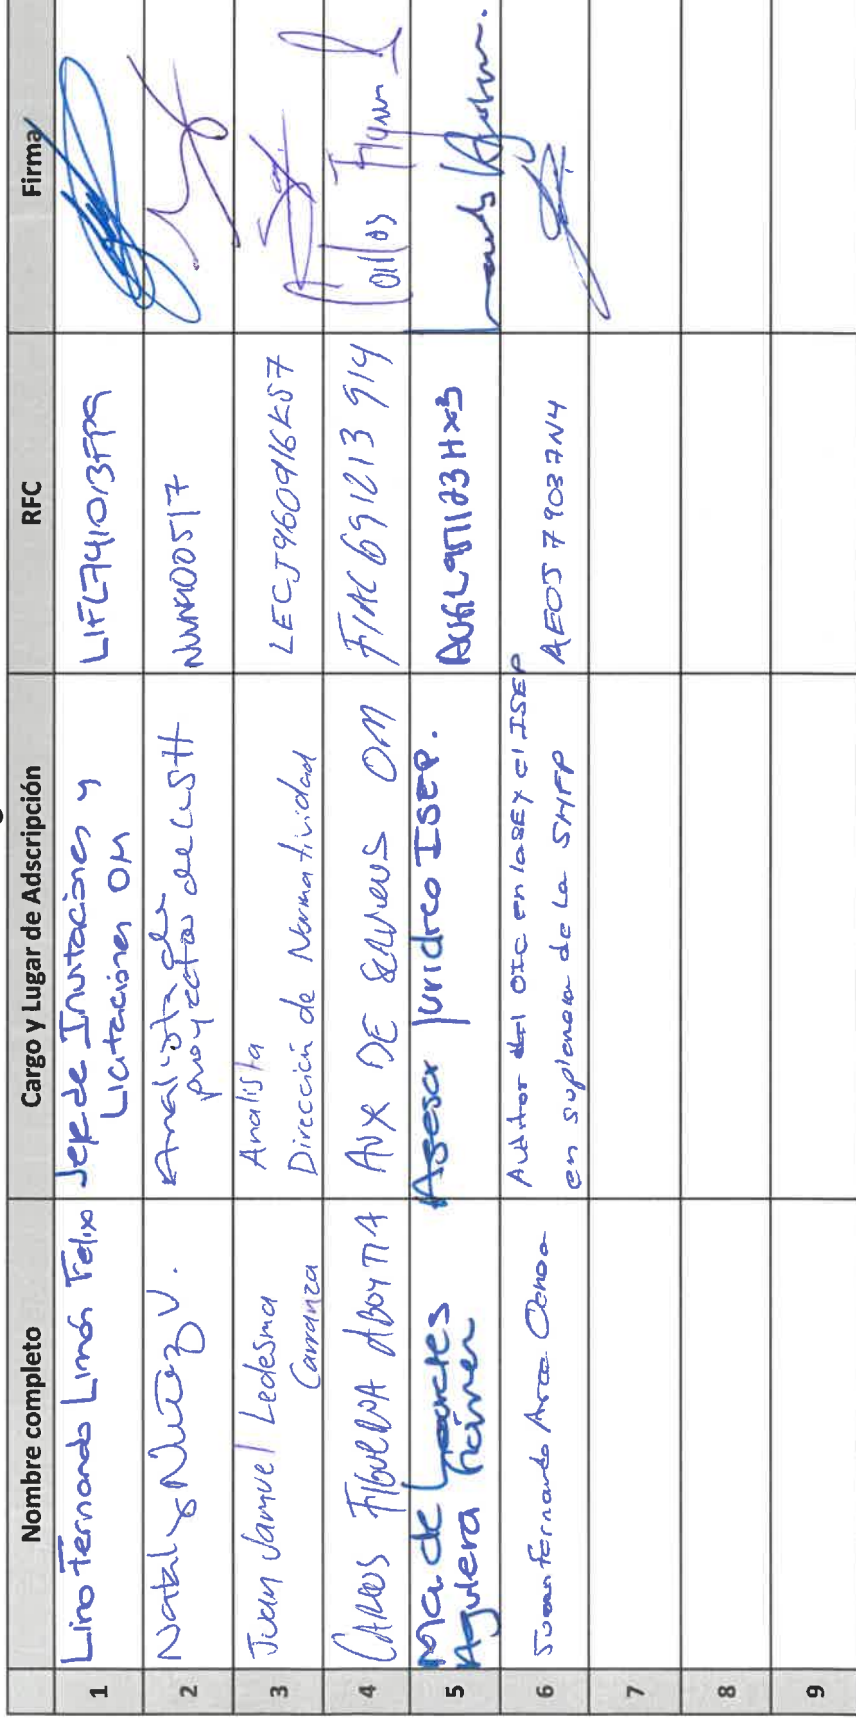 Nombre completo Cargo y Lugar de Adscripción RFC Firma
1 Lino Fernando Limón Felix Jefe de Invitaciones y Licitaciones OM LIFL741013FPA
2 Nataly Nuñez V. Analista de proyectos de
3 Juan Samuel Ledesma Carranza Analista Dirección de Normatividad LECJ960916KS7
4 CARLOS FIGUEROA ABOYTIA AUX DE SERVICIOS OM FIAC691213 914 Carlos
5 Ma de Lourdes Aguilera Asesor Jurídico ISEP.
6 Juan Fernando Arce Ochoa Auditor del OIC en la SE y el ISEP en suplencia de la SHFP
7
8
9